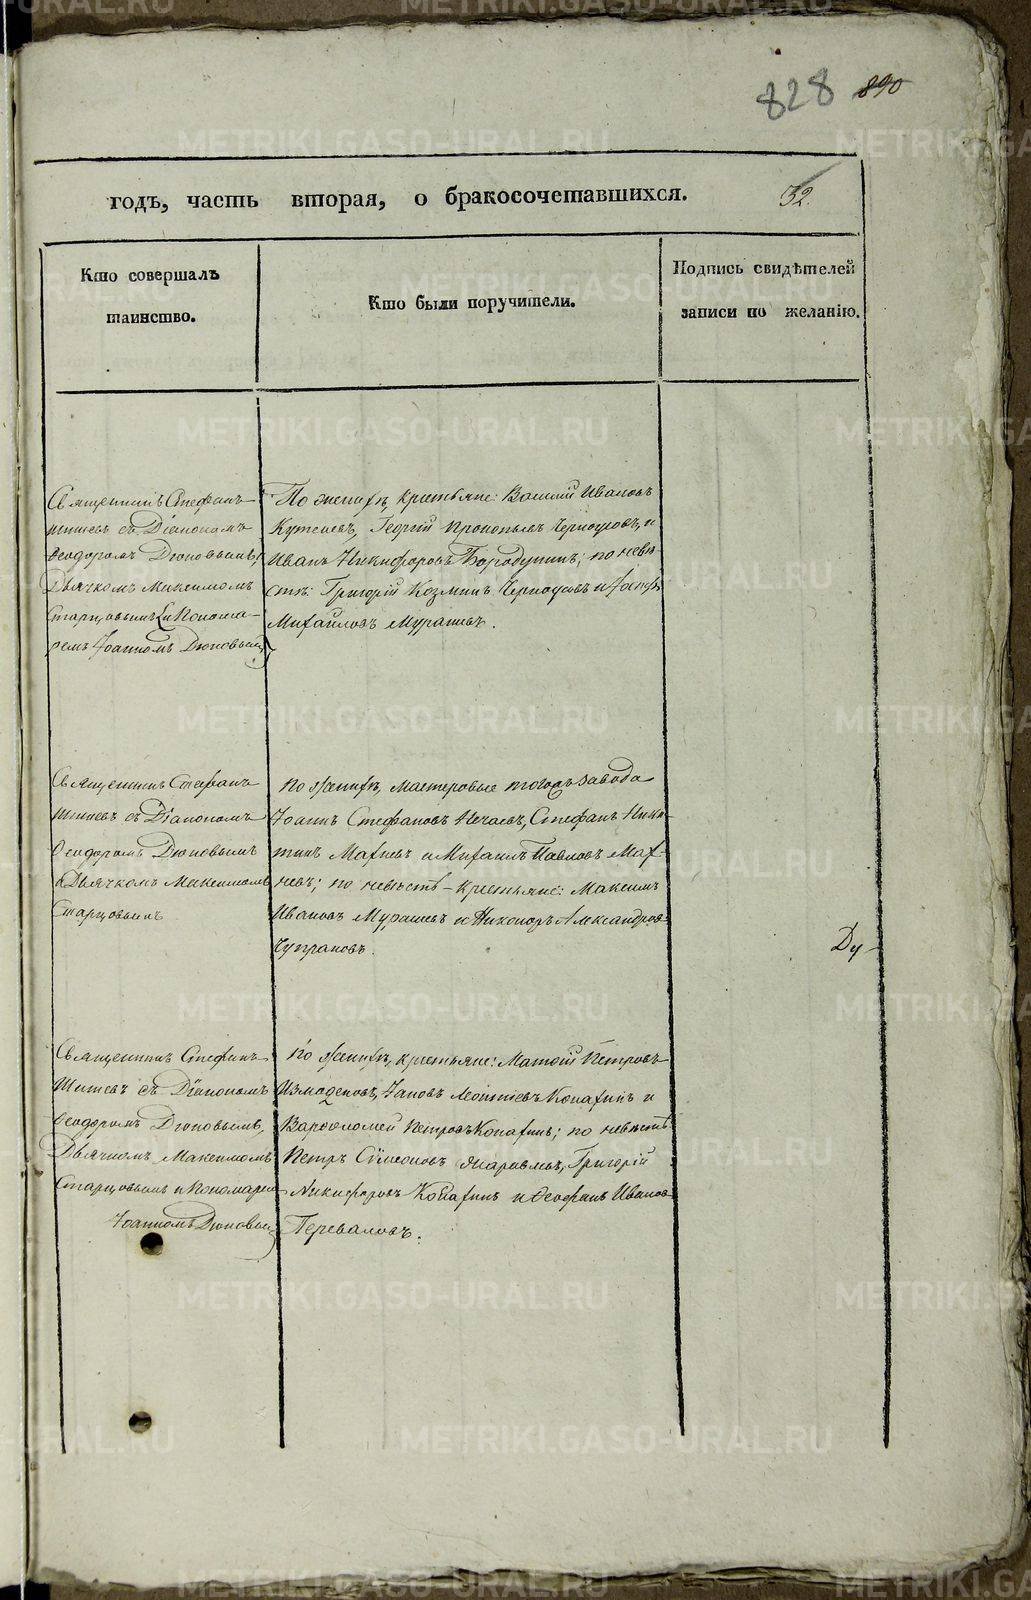 828 890
годъ, часть вторая, о бракосочетавшихся. 32.
Кто совершалъ
таинство.
Кто были поручители.
Подпись свидѣтелей
записи по желанію.
Священникъ Стефанъ
Шишевъ съ Діакономъ
Ѳеодоромъ Дюковымъ,
Дьячкомъ Максимомъ
Старцовымъ и Понома-
ремъ Іоанномъ Дюковымъ
По женихѣ, крестьяне: Василій Ивановъ
Георгій Прокопьевъ Черноусовъ, и
Иванъ Никифоровъ Бородулинъ; по невѣ
стѣ: Григорій Козминъ Черноусовъ и
Михайловъ Мурашевъ.
Священникъ Стефанъ
Шишевъ съ Діакономъ
Ѳеодоромъ Дюковымъ
и Дьячкомъ Максимомъ
Старцовымъ
по женихѣ, мастеровые того завода
Іоаннъ Стефановъ Нечаевъ, Стефанъ Ники-
тинъ Махневъ и Михаилъ Павловъ Мах-
невъ; по невѣстѣ - крестьяне: Максимъ
Ивановъ Мурашевъ и Никоноръ Александровъ
Чупраковъ.
Ду-
Священникъ Стефанъ
Шишевъ съ Діакономъ
Ѳеодоромъ Дюковымъ,
Дьячкомъ Максимомъ
Старцовымъ и Пономаремъ
Іоанномъ Дюковымъ
По женихѣ, крестьяне: Матѳій Петровъ
Измоденовъ, Іаковъ Леонтіевъ Кокаринъ и
Варѳоломей Петровъ Кокаринъ; по невѣстѣ
Петръ Сѵмеоновъ Григорій
Никифоровъ Кокаринъ и Ѳеофанъ Ивановъ
Переваловъ.
METRIKI.GASO-URAL.RU